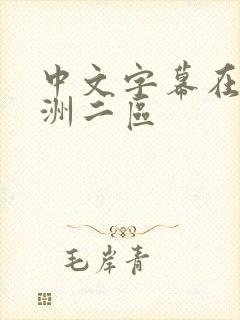 中文字幕在
洲二區
毛岸青